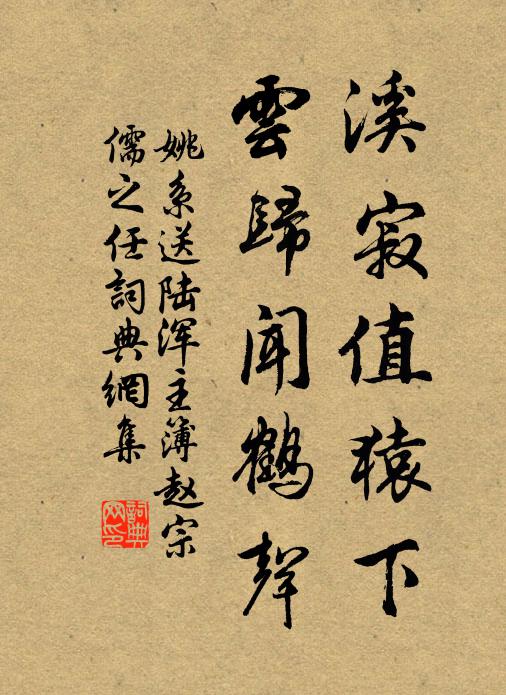 溪寂值猿下
雲歸闻鶴聲
姚系送陆浑主簿赵宗
儒之任詞典網集
詞典網印